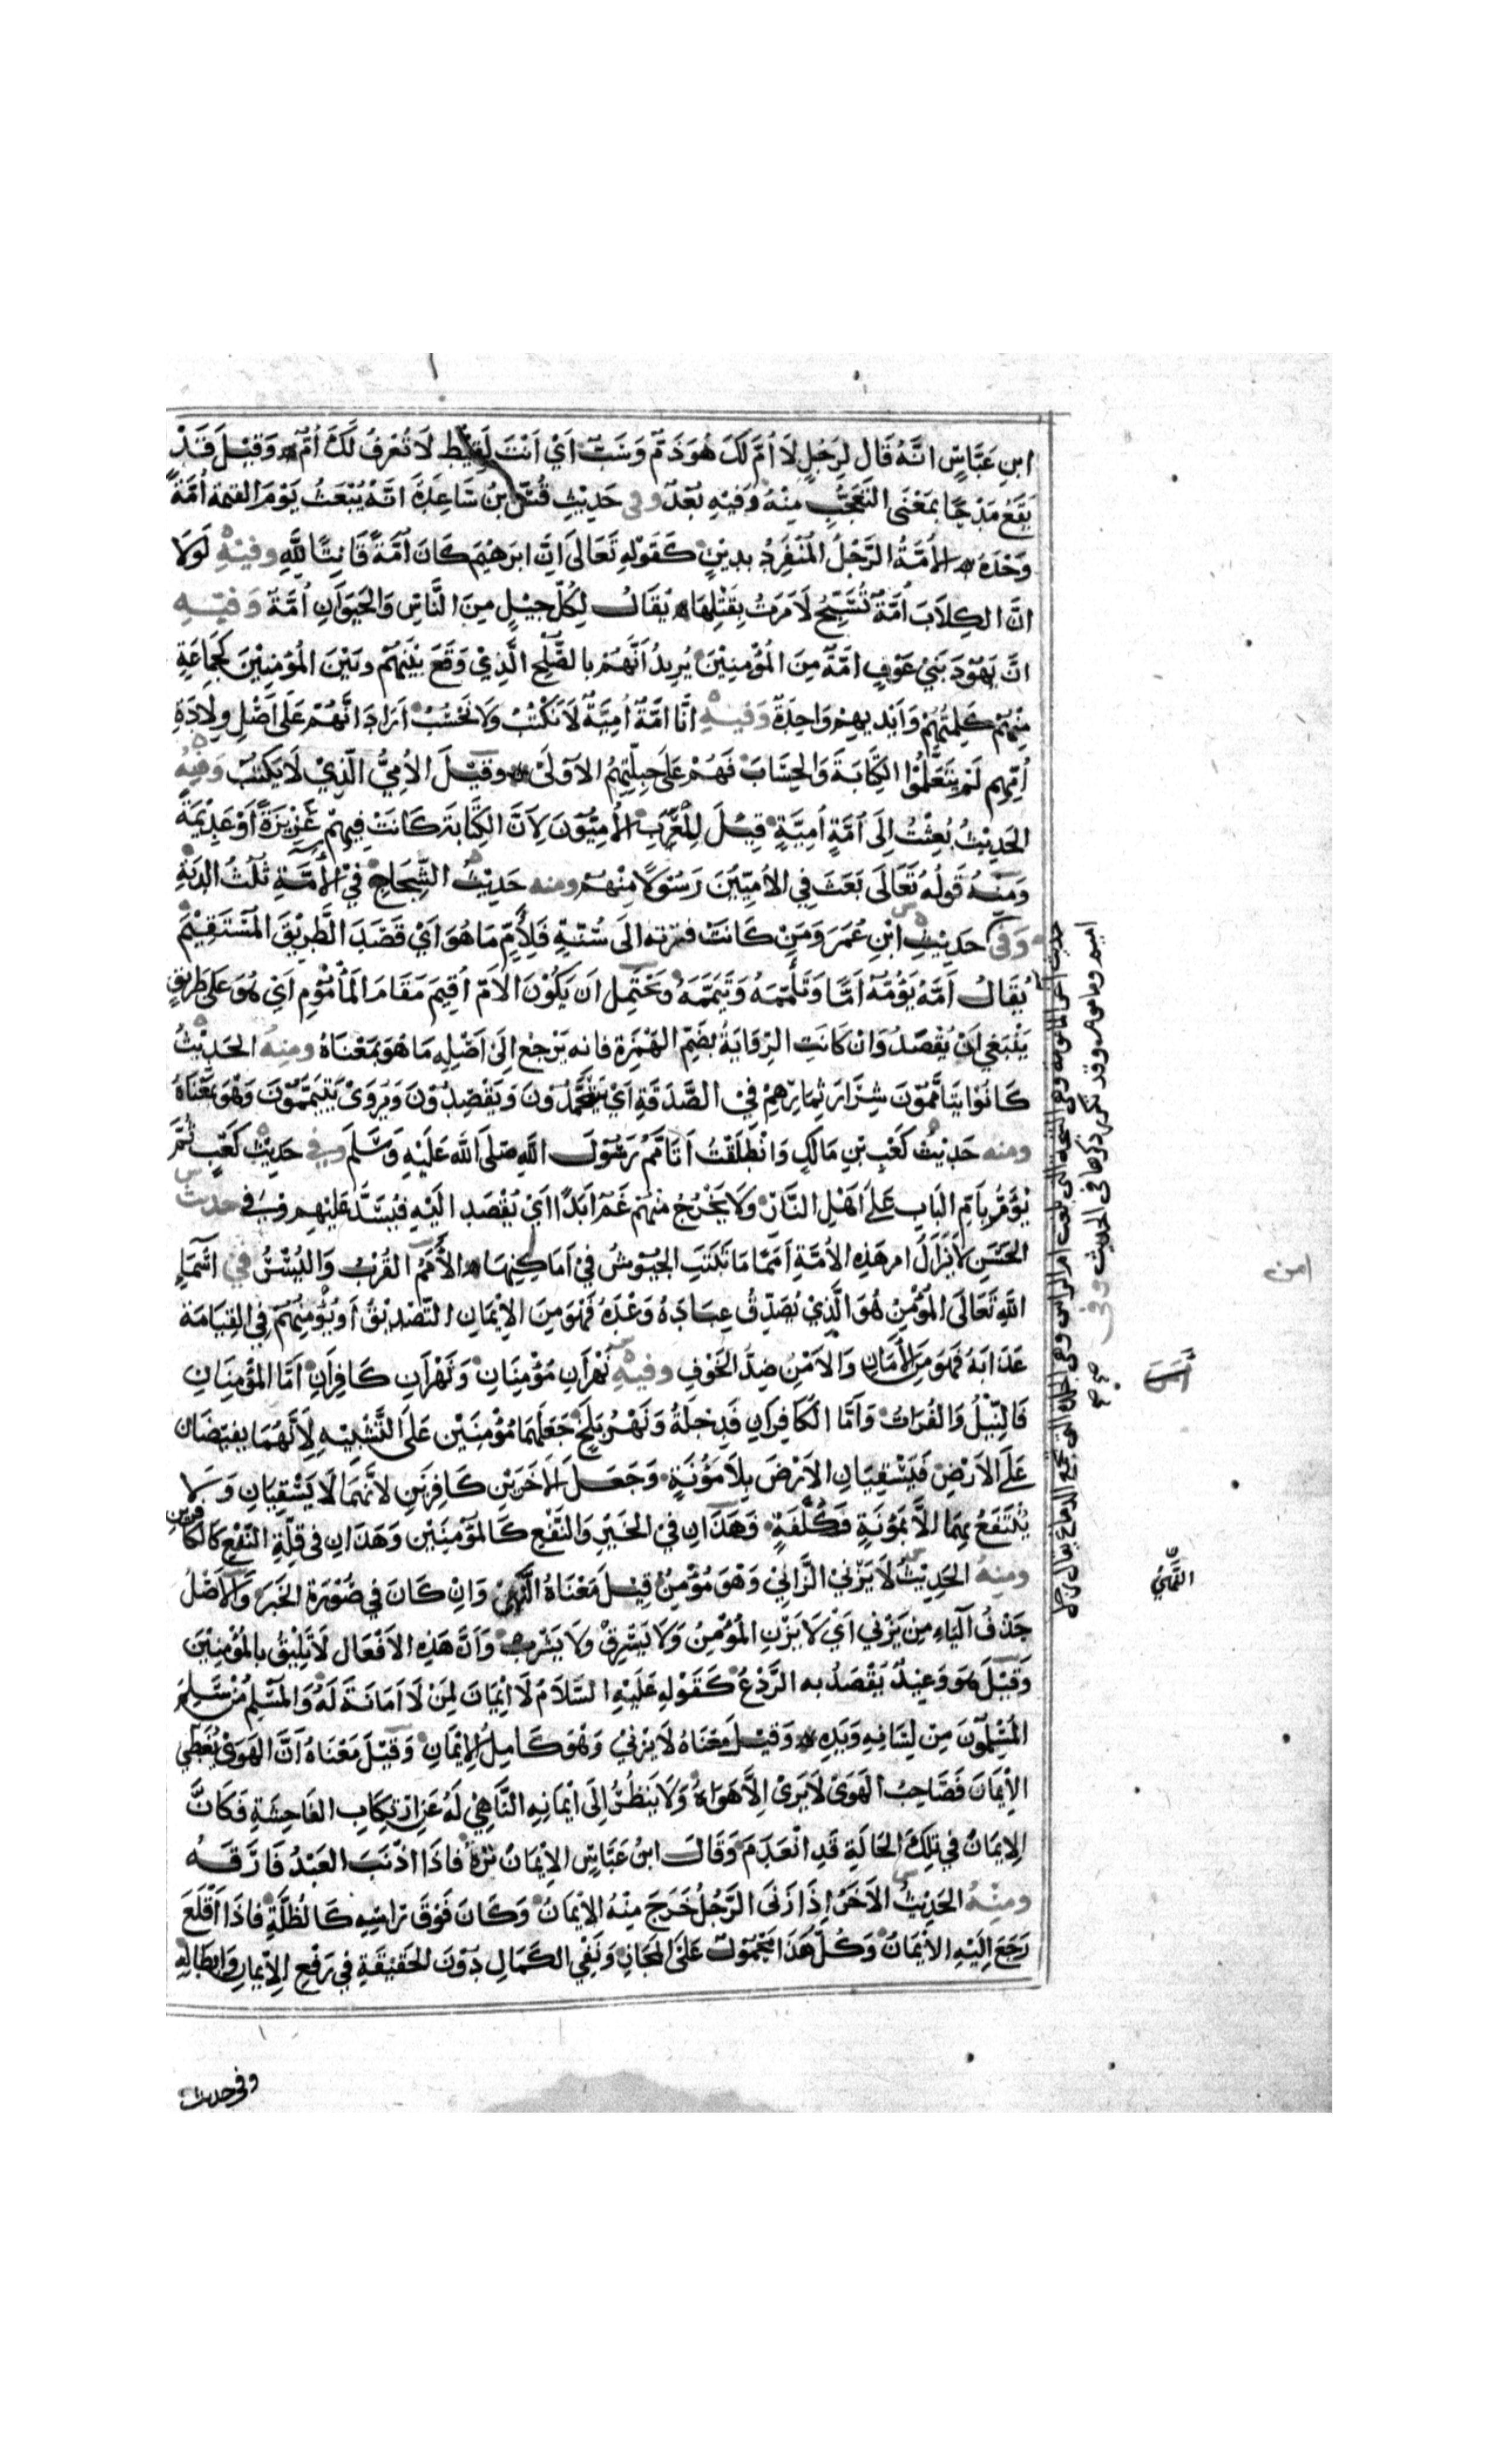 ابنِ عَبَّاسٍ انَّهُ قَال لِرَجُلٍ لَا اُمَّ لَكَ هُوَ ذَمٌّ وَسَبٌّ اَيْ اَنْتَ لَقِيْط لَا تُعْرفُ لَكَ اُمٌّ وَقِيْلَ قَدْ
يَقَعُ مَدْحًا بمَعْنَى التَعَجُّبِ مِنْهُ وَفيْهِ بُعْدٌ وفي حَدِيْثِ قُسِّ بنُ سَاعِدَةَ انَّهُ يُبْعَثُ يَوْمَ القيمة اُمَّةً
وَحْدَهُ الاُمَّةُ الرَّجُلُ المُنْفَرِدُ بدِيْنٍ كَقَوْلِهِ تَعَالىَ اِنَّ ابرَهِيْمَ كَانَ اُمَّةً قَانِتًا لِلَّهِ وفيْهِ لَوْلَا
انَّ الكِلَابَ اُمَّةٌ تُسَبِّحُ لَاَمَرْتُ بِقَتْلِهَا يُقَالُ لِكُلِّ جِيْلٍ مِنَ النَّاسِ وَالحَيَوَانِ اُمَّةٌ وَفيْهِ
انَّ يَهُوْدَ بَنِي عَوْفٍ امَّةٌ مِنَ الْمُؤْمِنِيْنَ يُرِيدُ اَنَّهُمْ بالصُّلْحِ الَّذِيْ وَقَعَ بَيْنَهُمْ وبَيْنَ المُؤمِنِيْنَ كجَمَاعَةٍ
مِنْهُمْ كَلِمَتُهُمْ وَاَيْدِيهِمْ وَاحِدَةٌ وَفيْهِ اِنَّا امَّةٌ اُمِيَّةٌ لَا نَكْتُبُ وَلَا نَحْسُبُ اَرَادَ انَّهُمْ عَلَى اَصْلِ وِلَادَةِ
اُمِّهِم لَمْ يَتَعَلَّمُوْا الكِتَابَةَ وَالحِسَابَ فَهُمْ عَلَى جِبِلَّتِهِمُ الاُوْلىٰ وَقيْلَ الاُمِيُّ الَّذِيْ لَا يَكْتُبُ وَفيْهِ
الحَدِيْثُ بُعِثْتُ اِلَى اُمَّةٍ اُمِيَّةٍ قِيْلَ لِلْعَرَبِ الاُمِيُّوْنَ لِاَنَّ الكِتَابَةَ كَانَتْ فِيهِمْ عَزِيْزَةً اَوْ عَدِيْمَةً
وَمِنْهُ قَولُهُ تَعَالَى بَعَثَ فِي الاُمِيّيْنَ رَسُوْلًا مِنْهُمْ ومنه حَدِيْثُ الشِّجَاجِ فِيْ الْآمَّةِ ثُلُثُ الدِيَةِ
وَفى حَدِيْثِ ابْنِ عُمَرَ وَمَنْ كَانَتْ فترته الىَ سُنَّةٍ فَلِأَمٍّ مَا هُوَ اَيْ قَصَدَ الطَّرِيْقَ المُسْتَقِيْمَ
يُقَالُ اَمَّهُ يَؤُمُّهُ اَمًّا وَتَأَمَّمَهُ وَتَيَمَّمَهُ وَيَحْتَمِلُ اَن يَكُوْنَ الاَمّ اُقِيْمَ مَقَامَ المَأْمُوْمِ اَيْ هُوَ عَلَى طَرِيْقٍ
يَنْبَغِي اَنْ يُقْصَدَ وَانْ كَانَتِ الرِّوَايَةُ بِضَمِّ الهَمْزَةِ فانه يَرْجعُ اِلَى اَصْلِهِ مَا هُوَ بمَعْنَاهُ ومِنْهُ الحَدِيْثُ
كَانُوْا يَتَأَمَّمُوْنَ شِرَارَ ثِمَارِهِمْ فِيْ الصَّدَقَةِ اَيْ يَتَعَمَّدُوْنَ وَيَقْصِدُوْنَ وَيُرْوَىْ يَتَيَمَّمُوْنَ وَهُوَ بمَعْنَاهُ
ومنه حَدِيْثُ كَعْبِ بْنِ مَالِكٍ وَانْطَلَقْتُ اَتَأَمَّمُ رَسُوْلَ اللّٰهِ صَلَى اللّٰه عَلَيْهِ وَسَلَّمَ وفي حَدِيْثِ كَعْبٍ ثُمَّ
يُؤْمَرُ بِأَمِّ البَابِ عَلَى اَهْلِ النَّارِ وَلَا يَخْرُجُ مِنْهُمْ غَمٌّ اَبَدًا اَيْ يُقْصَدُ اِلَيْهِ فيُسَدُّ عَلَيْهِم وفي حديث
الحَسَنِ لَا يَزَالُ امر هَذِهِ الاُمَّةِ اَمَمًا مَا ثَبَتَتِ الجُيُوْشُ فِيْ اَمَاكِنِهَا الْأَمَمُ القُرْبُ وَاليُسْرُ في اَسْمَاءِ
اللّٰهِ تَعَالَى الْمُؤْمِنُ هُوَ الَّذِيْ يُصَدِّقُ عِبَادَهُ وَعْدَهُ فَهُوَ مِنَ الاِيْمَانِ التَّصْدِيْقُ اَوْ يُؤْمِنُهُمْ فِي القِيَامَةِ
عَذَابَهُ فَهُوَ مِنَ الْأَمَانِ وَالاَمْنُ ضِدُّ الخَوْفِ وفيْهِ نَهْرَانِ مُؤْمِنَانِ وَنَهْرَانِ كَافِرَانِ اَمَّا المُؤْمِنَانِ
فَالنِّيْلُ وَالفُرَاتُ وَاَمَّا الْكَافِرَانِ فَدِجْلَةُ وَنَهْرُ بَلْخٍ جَعَلَهُمَا مُؤْمِنَيْنِ عَلَى التَّشْبِيْهِ لِاَنَّهُمَا يفيضَان
عَلَى الاَرْضِ فَيَسْقِيَانِ الاَرْضَ بِلَا مَؤُنَةٍ وَجَعَلَ الْآخَرَيْنِ كَافِرَيْنِ لانَّهُمَا لَا يَسْقِيَانِ وَلَا
يُنْتَفَعُ بِهِمَا اِلَّا بَمَؤُنَةٍ وَكُلْفَةٍ وَهَذَانِ فِيْ الخَيْرِ وَالنَّفْعِ كَالمُؤْمِنَيْنِ وَهَذَانِ فى قِلَّةِ النَّفْعِ كَالكَافِرَيْنِ
ومنهُ الحَدِيْثُ لَا يَزْنِيْ الزَّانِيْ وَهُوَ مُؤْمِنٌ قِيْلَ مَعْنَاهُ النَّهْيُ وَاِنْ كَانَ فِي صُوْرَةِ الخَبَرِ وَالْاَصْلُ
حَذْفُ الْيَاءِ مِنْ يَزْنِي اَيْ لَا يَزْنِ المُؤْمِنُ وَلَا يَسْرِقْ وَلا يَشْرَبْ وَاَنَّ هَذِهِ الاَفْعَالَ لَا تَلِيْقُ بالمُؤْمِنِيْنَ
وَقِيْلَ هُوَ وَعِيْدٌ يُقْصَدُ به الرَّدْعُ كَقَوْلِهِ عَلَيْهِ السَّلَامُ لَا اِيْمَانَ لِمَنْ لَا اَمَانَةَ لَهُ وَالمُسْلِمُ مَنْ سَلِمَ
المُسْلِمُوْنَ مِنْ لِسَانِهِ وَيَدِهِ وَقيْلَ مَعْنَاهُ لَا يَزْنِيْ وَهُوَ كَامِلُ الْاِيْمَانِ وَقِيْلَ مَعْنَاهُ اَنَّ الهَوَىْ يُغَطِّي
الاِيْمَانَ فَصَاحِبُ الهَوَىْ لَا يَرىْ اِلَّا هَوَاهُ وَلَا يَنظُرُ اِلَى اِيْمَانِهِ النَّاهِيْ لَهُ عَنِ ارْتِكَابِ الفَاحِشَةِ فَكَانَّ
الاِيمَانَ فِي تِلْكَ الحَالَةِ قَدِ انْعَدَمَ وَقَالَ ابنُ عَبَّاسٍ الاِيْمَانُ نَزِهٌ فاذَا اذْنَبَ العَبْدُ فَارَقَهُ
ومِنْهُ الحَدِيْثُ الاَخَرُ اِذَا زَنَى الرَّجُلُ خَرَجَ مِنْهُ الاِيْمَانُ وَكَانَ فَوْقَ رَاسِهِ كَالظُلَّةِ فاذَا اَقْلَعَ
رَجَعَ اِلَيْهِ الاِيْمَانُ وَكُلُّ هَذَا مَحْمُوْلٌ عَلَى المَجَازِ وَنَفْيِ الكَمَالِ دُوْنَ الحَقِيْقَةِ فِي رَفْعِ الْاِيْمَانِ وَاِبْطَالِهِ
وفي حديث
حديث اخر المامومة وهى الشجة التى بلغت ام الراس وهى الجلدة التى تجمع الدماغ يقال رجل
اميم ومامومر وقد تكرر ذكرها فى الحديث وفى
امن